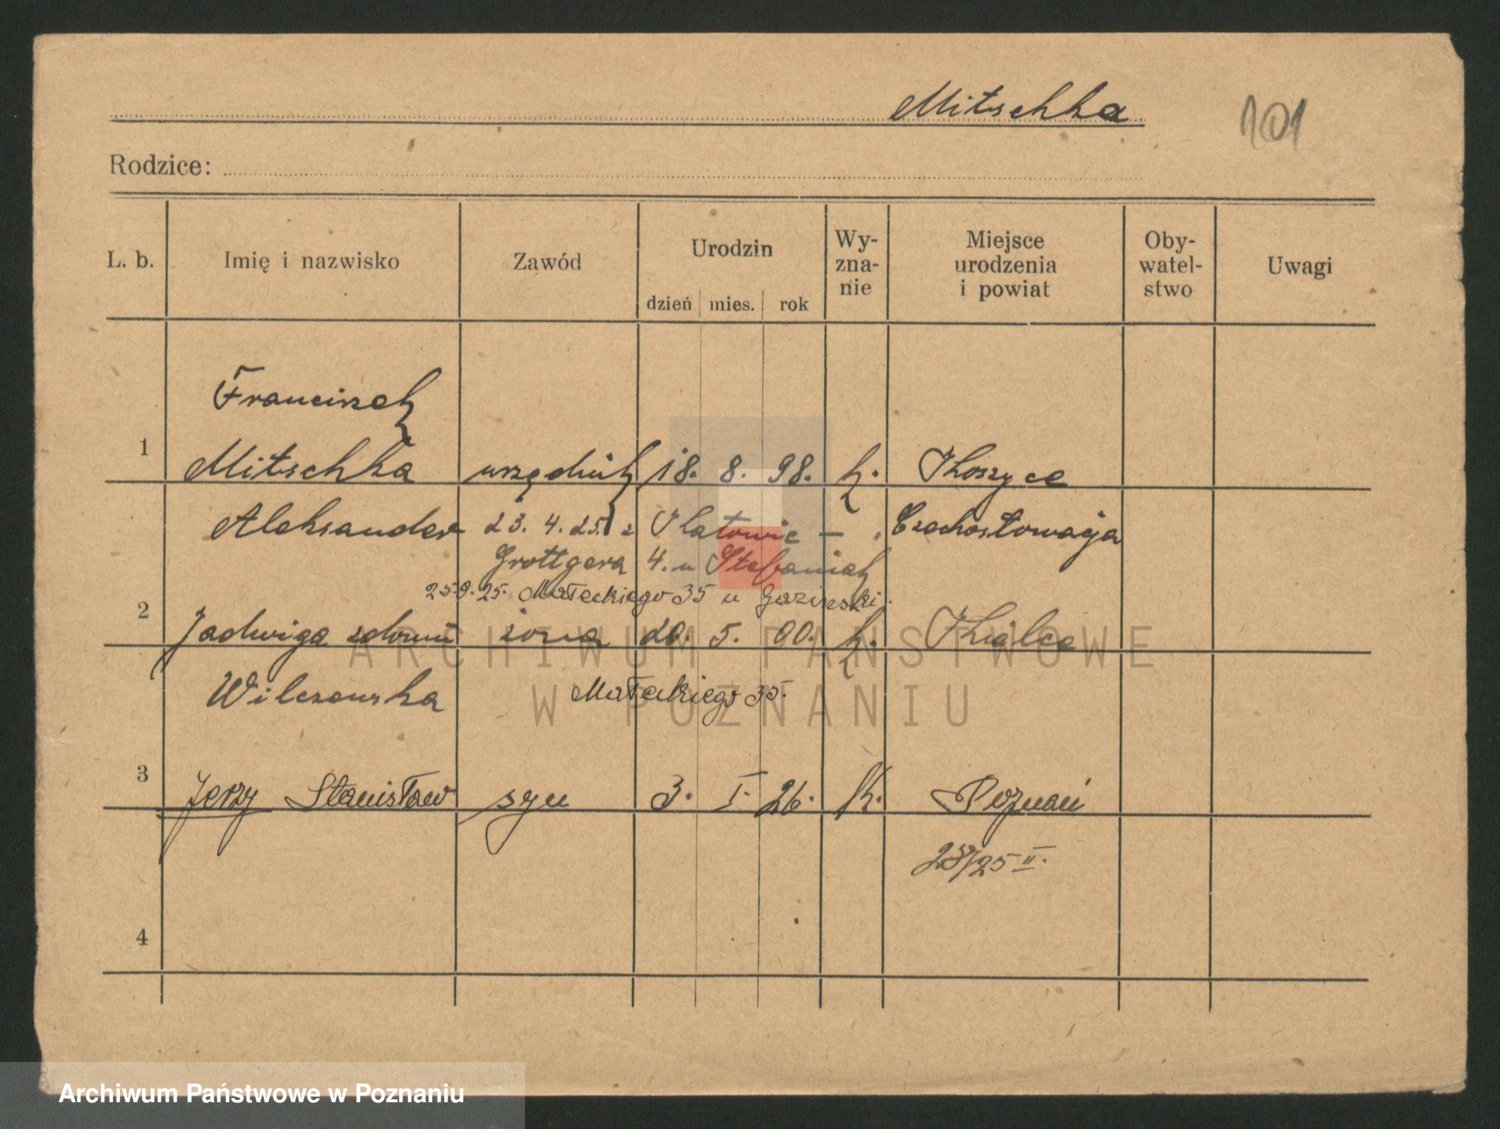 Mitschka
101
Rodzice:
L. b. Imię i nazwisko Zawód Urodzin dzień mies. rok Wy-zna-nie Miejsce urodzenia i powiat Oby-watel-stwo Uwagi
Franciszek
1 Mitschka urzędnik 18. 8. 98. k. Koszyce
Aleksander 23. 4. 25. z Katowic — Czechosłowacja
Grottgera 4. u Stefaniak
25.9.25. Małeckiego 35 u
2 Jadwiga zdomu żona 20. 5. 00. k. Kielce
Wilczewska Małeckiego 35.
3 Jerzy Stanisław syn 3. I. 26. K. Poznań
25 II.
4
ARCHIWUM PAŃSTWOWE
W POZNANIU
Archiwum Państwowe w Poznaniu